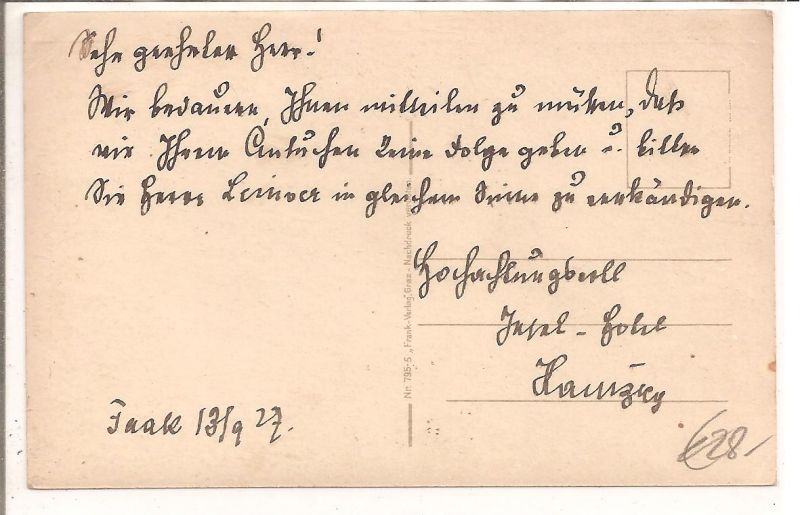 Sehr geehrter Herr!
Wir bedauern, Ihnen mitteilen zu müssen, daß
wir Ihrem Ansuchen keine Folge geben u. bitten
Sie Herrn in gleichem Sinne zu verständigen.
Hochachtungsvoll
Insel-Hotel
Faak 13/9 27.
Nr. 795-5 „Frank-Verlag" Graz - Nachdruck
€28,-